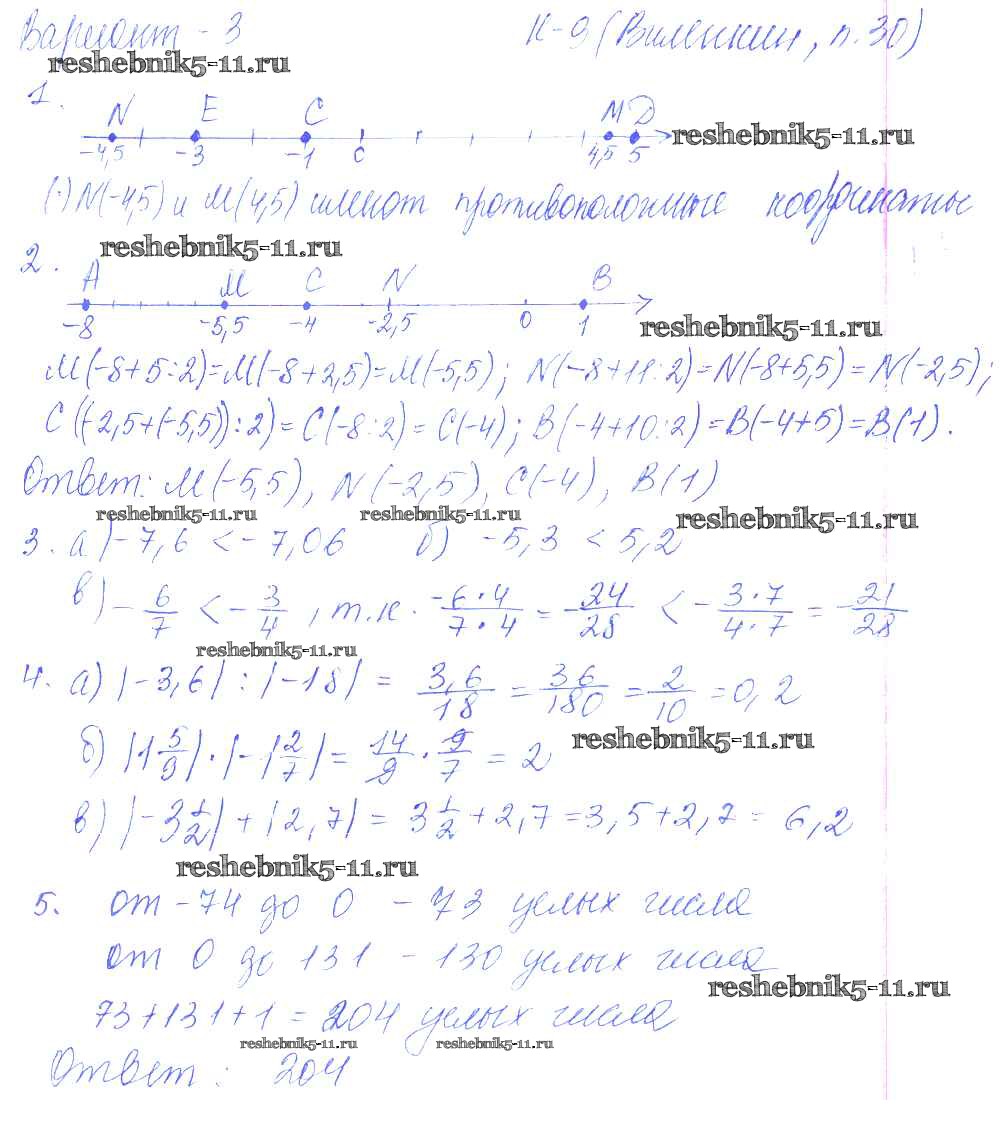 Вариант - 3 К-9 (Виленкин, п. 30)
reshebnik5-11.ru
1.
N E C M D
-4,5 -3 -1 0 4,5 5
reshebnik5-11.ru
(·) N(-4,5) и M(4,5) имеют противоположные координаты
reshebnik5-11.ru
2.
A M C N B
-8 -5,5 -4 -2,5 0 1
reshebnik5-11.ru
M(-8+5:2)=M(-8+2,5)=M(-5,5); N(-8+11:2)=N(-8+5,5)=N(-2,5);
C((-2,5+(-5,5)):2)=C(-8:2)=C(-4); B(-4+10:2)=B(-4+5)=B(1).
Ответ: M(-5,5), N(-2,5), C(-4), B(1)
reshebnik5-11.ru reshebnik5-11.ru reshebnik5-11.ru
3. а) -7,6 < -7,06 б) -5,3 < 5,2
в) -6/7 < -3/4, т.к. -6·4/7·4 = -24/28 < -3·7/4·7 = -21/28
reshebnik5-11.ru
4. а) |-3,6| : |-18| = 3,6/18 = 36/180 = 2/10 = 0,2
reshebnik5-11.ru
б) |1 5/9| · |-1 2/7| = 14/9 · 9/7 = 2
в) |-3 1/2| + |2,7| = 3 1/2 + 2,7 = 3,5 + 2,7 = 6,2
reshebnik5-11.ru
5. от -74 до 0 - 73 целых числа
от 0 до 131 - 130 целых числа
reshebnik5-11.ru
73+131+1=204 целых числа
reshebnik5-11.ru reshebnik5-11.ru
Ответ: 204